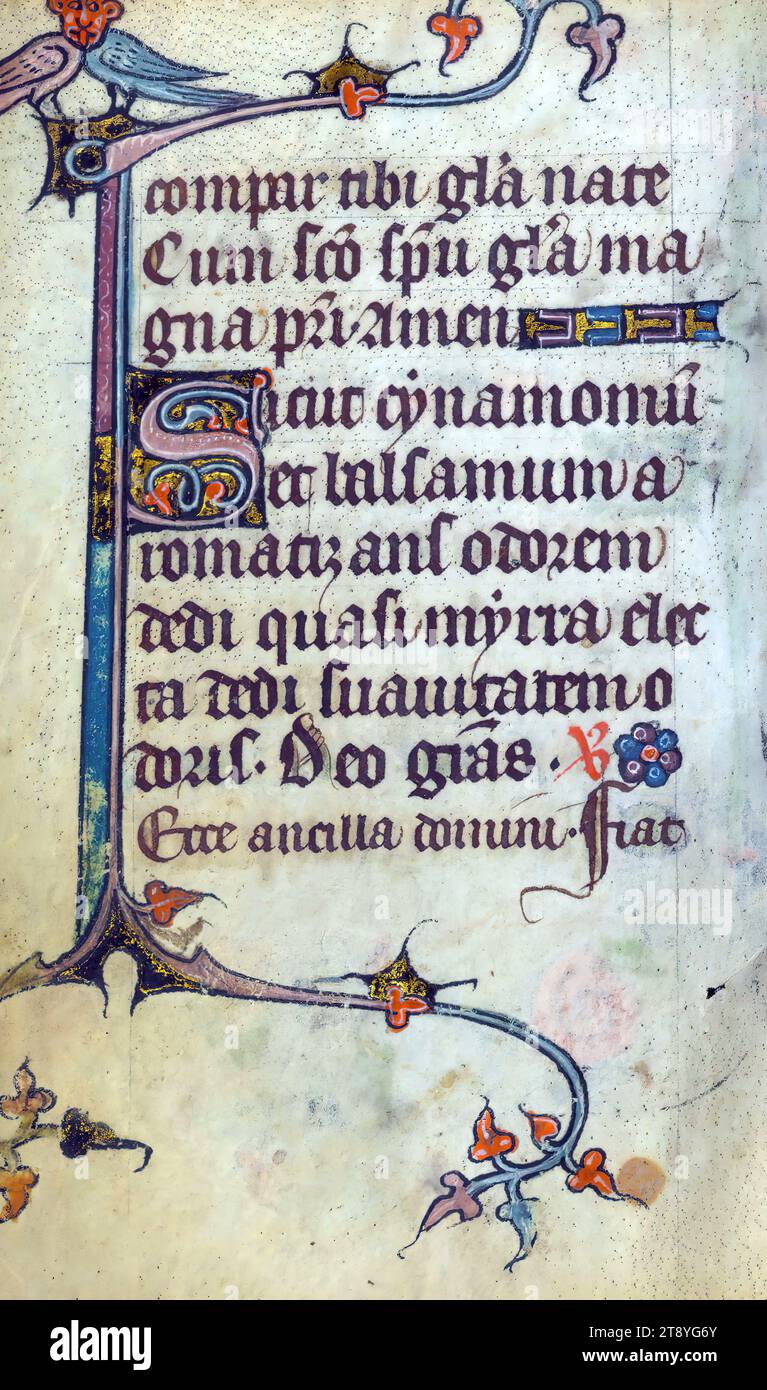 compar tibi gl'a nate
Cum sc̄o sp̄u gl'a ma
gna pr̄i. Amen
Sicut cẏnamomū
et balsamum a
romatizans odorem
dedi quasi mẏrra elec
ta dedi suauitatem o
doris. Deo gr̄as.
Ecce ancilla domini. Fiat
alamy
alamy
alamy
a
alamy
Image ID: 2T8YG6Y
www.alamy.com